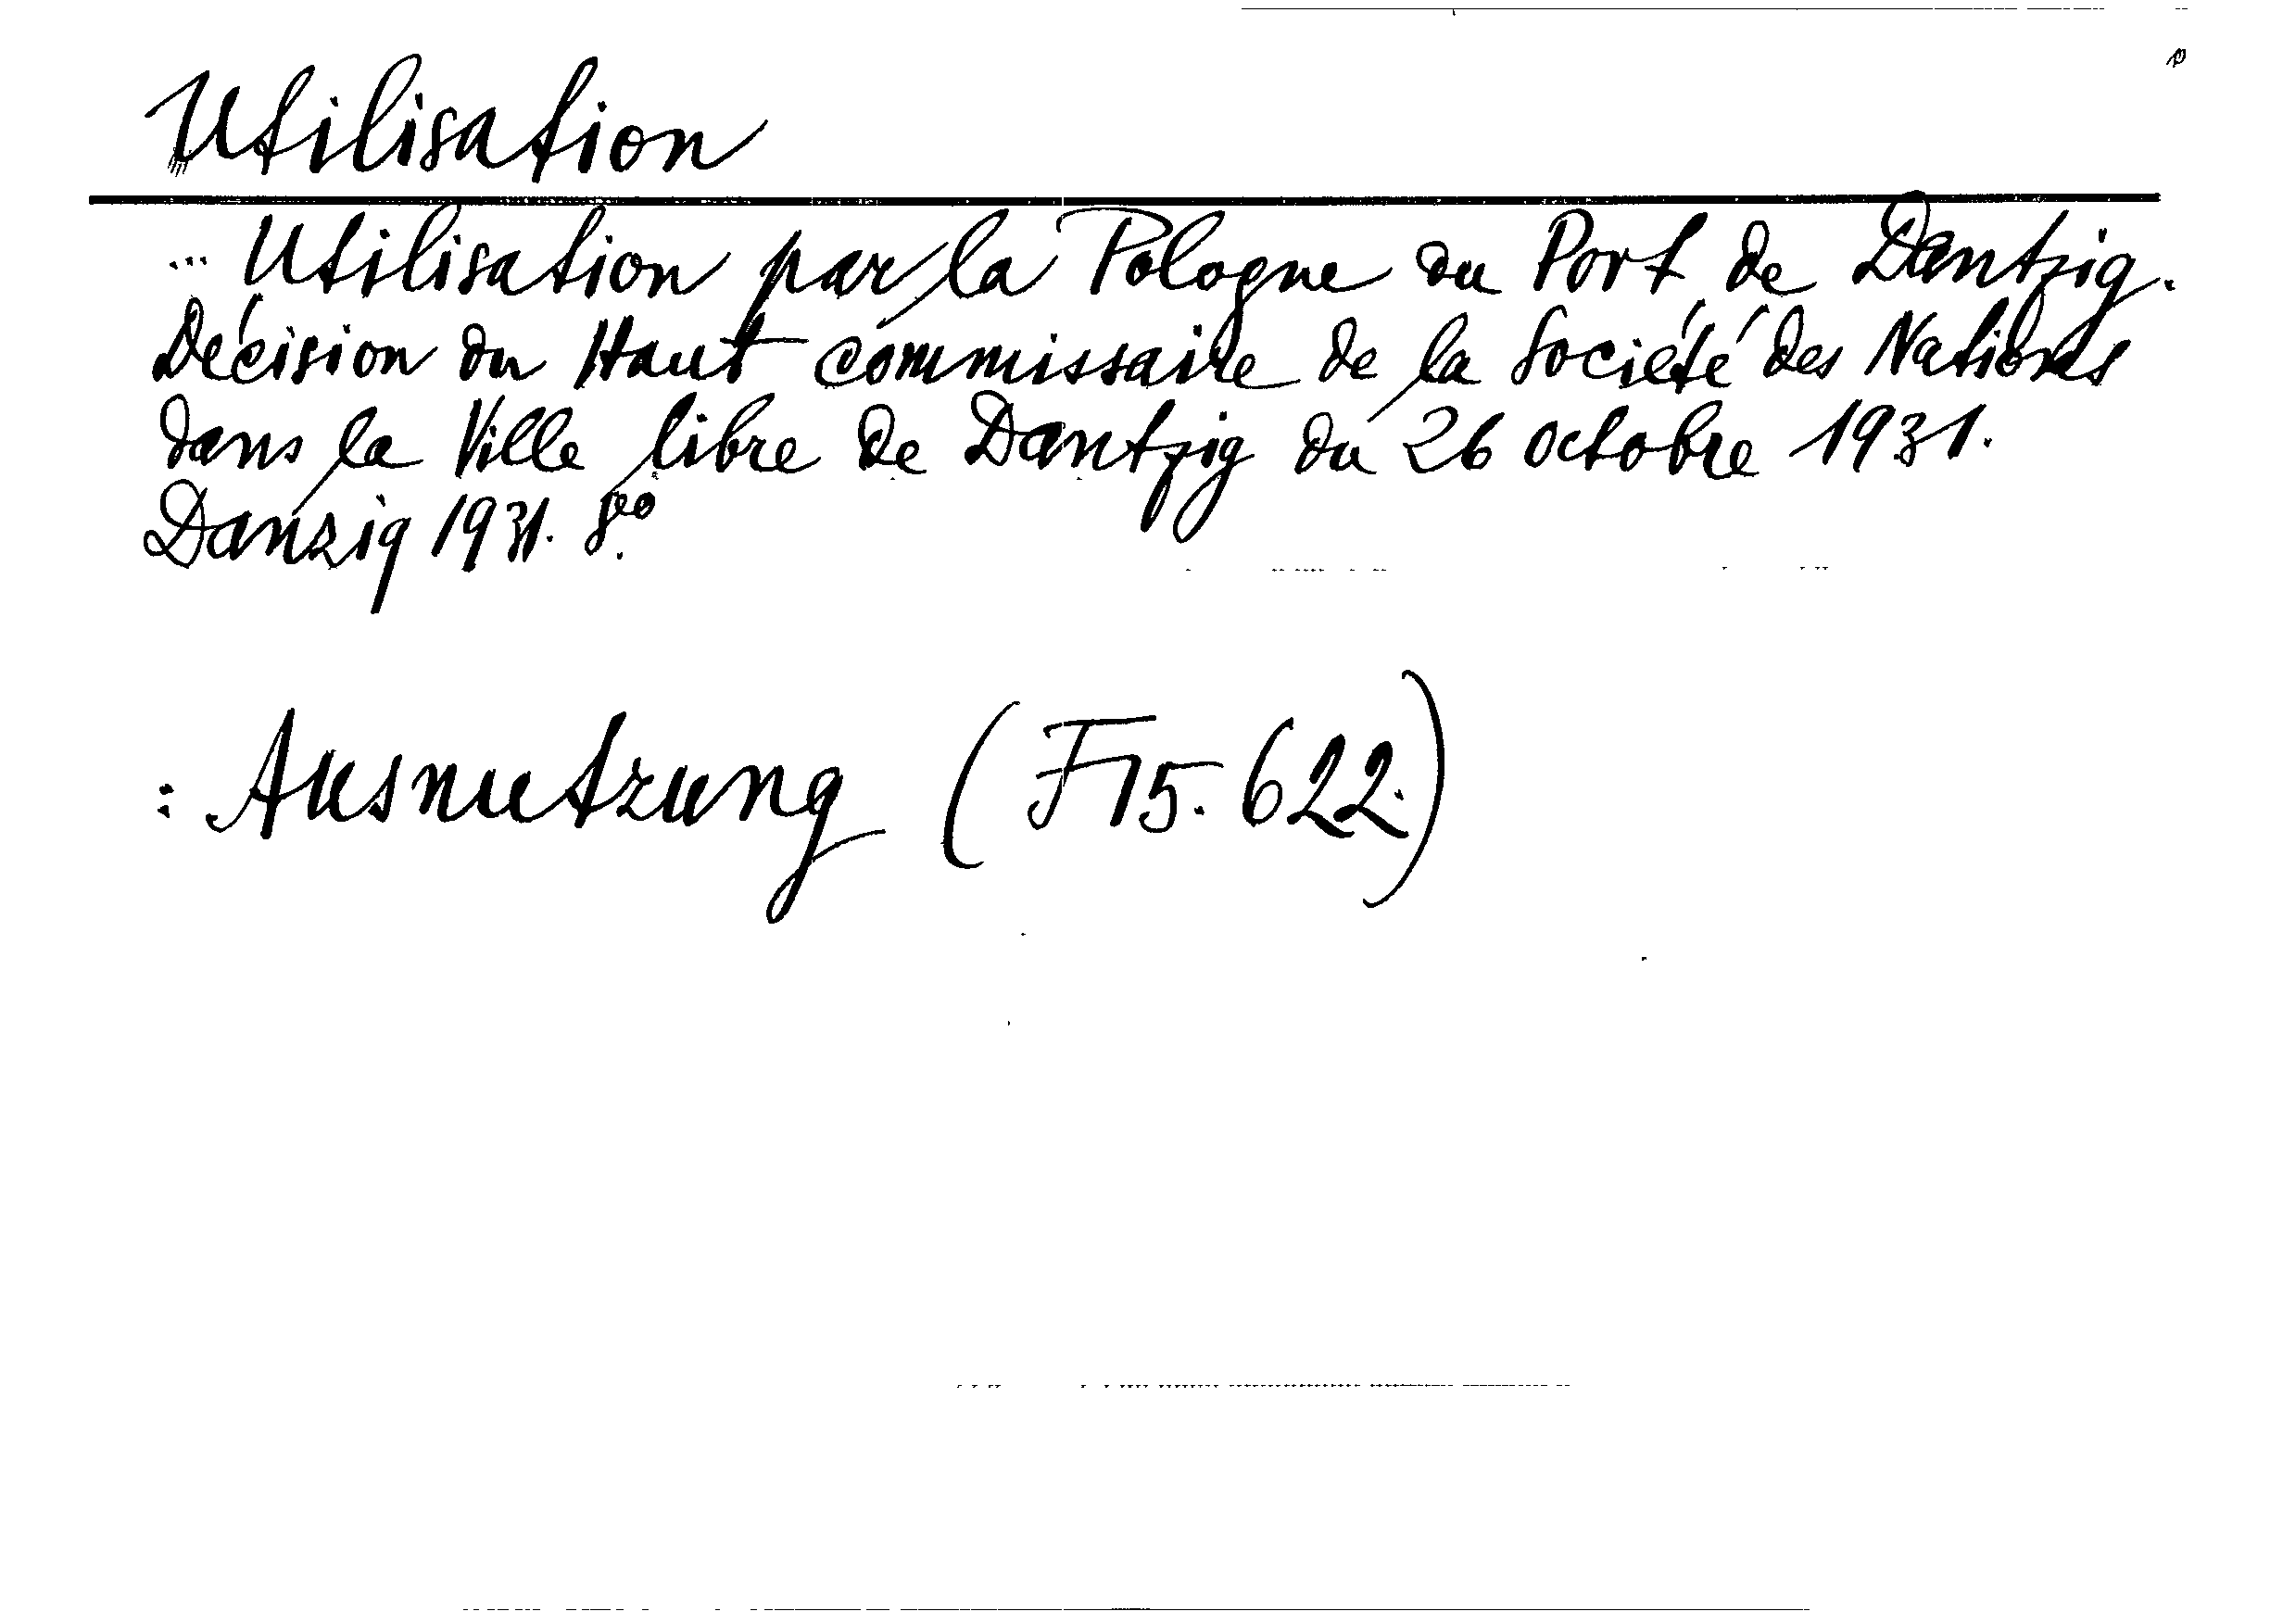 Utilisation
... Utilisation par la Pologne du Port de Dantzig.
Décision du Haut commissaire de la Société des Nations
dans la Ville libre de Dantzig du 26 octobre 1931.
Danzig 1931. 8º.
: Ausnutzung (F 15. 622.)